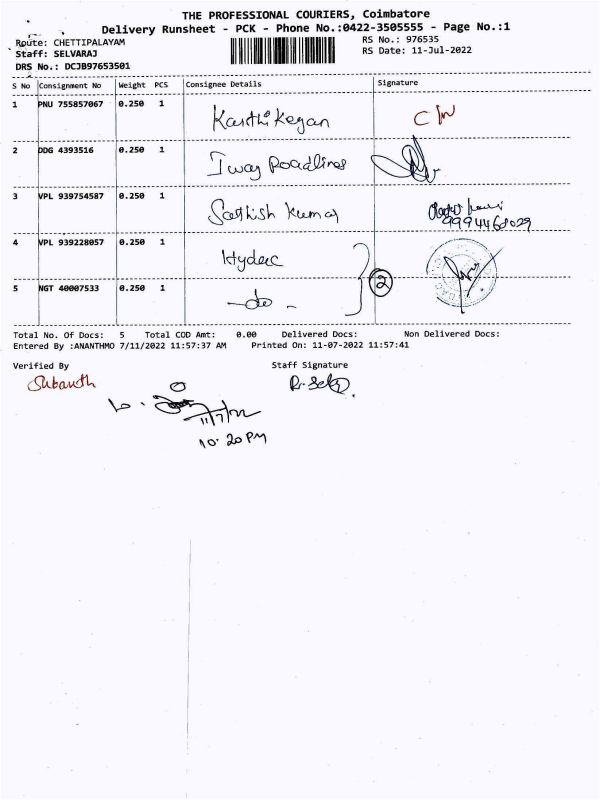 THE PROFESSIONAL COURIERS, Coimbatore
Delivery Runsheet - PCK - Phone No.:0422-3505555 - Page No.:1
Route: CHETTIPALAYAM
RS No.: 976535
Staff: SELVARAJ
RS Date: 11-Jul-2022
DRS No.: DCJB97653501
S No Consignment No Weight PCS Consignee Details Signature
1 PNU 755857067 0.250 1 Karthikeyan
2 DDG 4393516 0.250 1 Iway Roadlines
3 VPL 939754587 0.250 1 Sathish Kumar
9994468029
4 VPL 939228057 0.250 1 Hyderc
2
5 NGT 40007533 0.250 1 -do-
Total No. Of Docs: 5 Total COD Amt: 0.00 Delivered Docs: Non Delivered Docs:
Entered By :ANANTHMO 7/11/2022 11:57:37 AM Printed On: 11-07-2022 11:57:41
Verified By Staff Signature
Subanth
11/7/22
10.20 PM